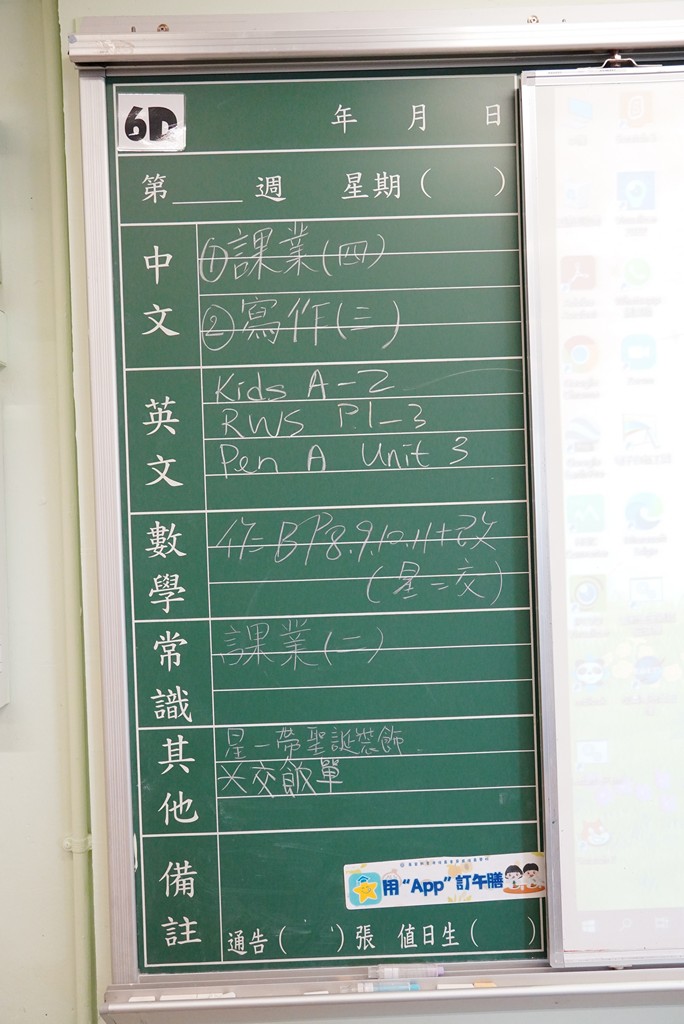 6D
年 月 日
第____週 星期( )
中文
①課業(四)
②寫作(三)
英文
Kids A-2
RWS P.1-3
Pen A Unit 3
數學
作=BP8.9.10.11+改
(星二交)
常識
課業(二)
其他
星一帶聖誕裝飾.
*交飯單
備註
用“App”訂午膳
通告( )張 值日生( )